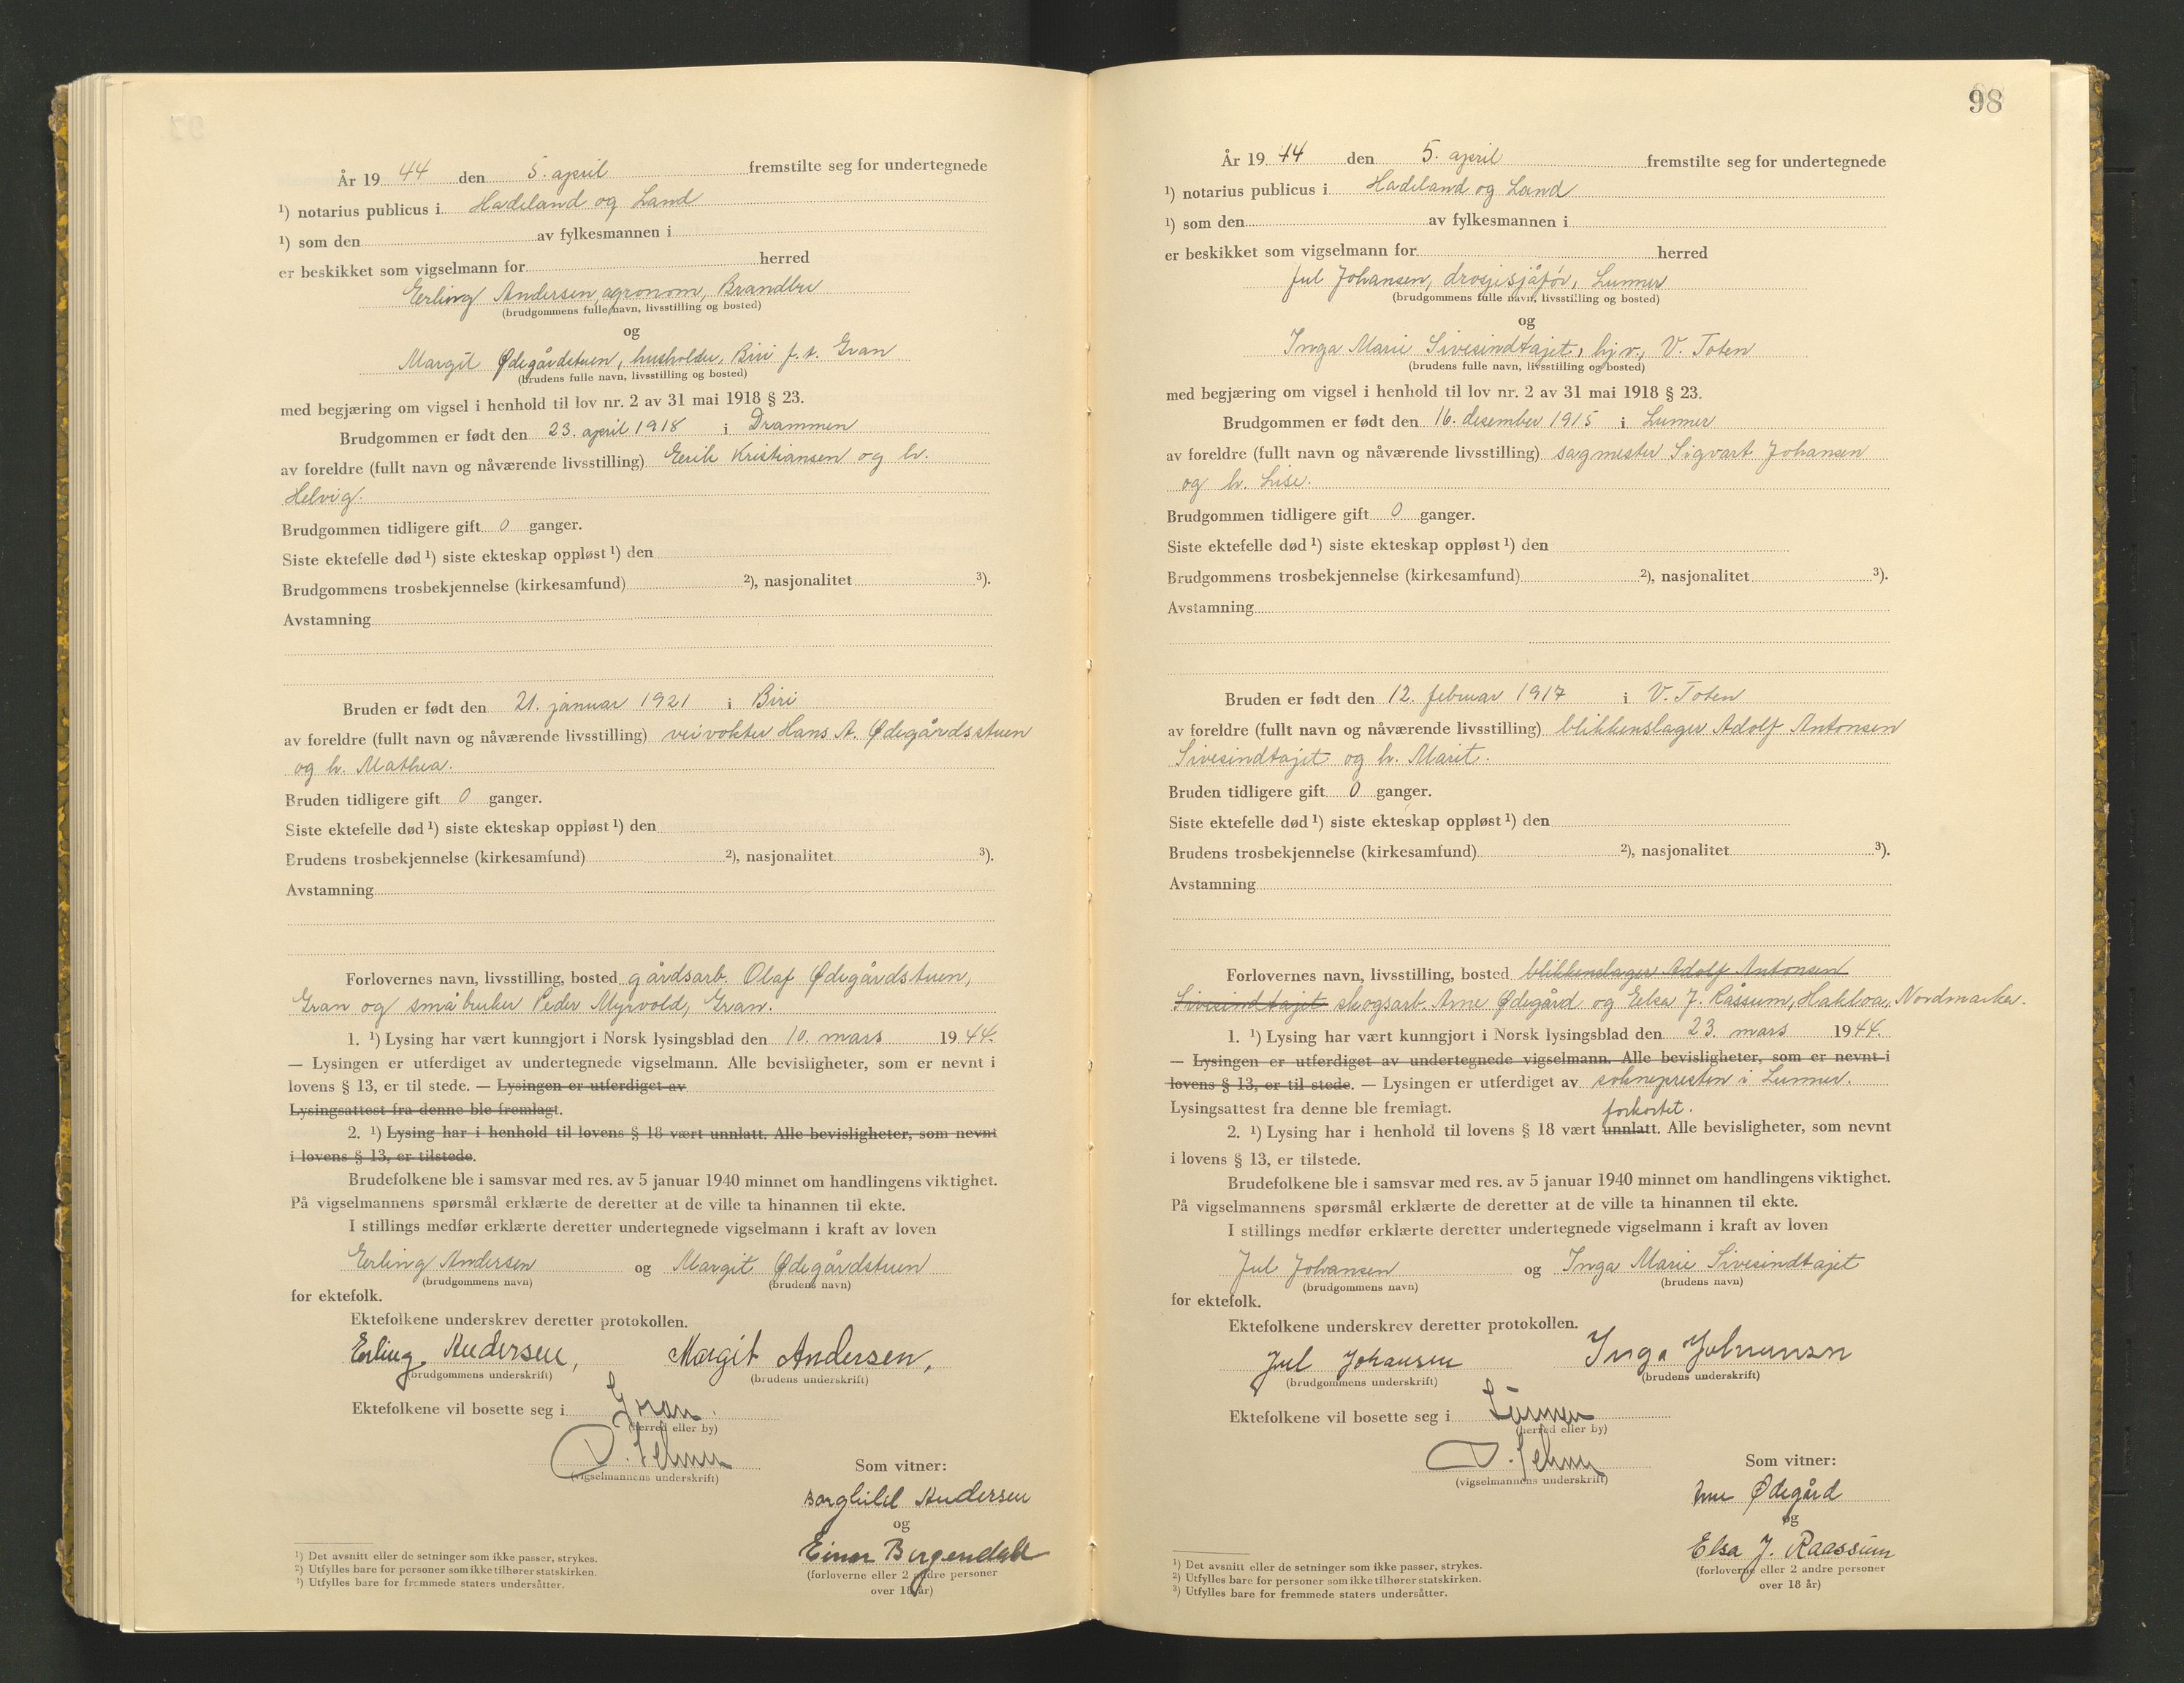 År 19 44 den 5. april fremstilte seg for undertegnede
¹) notarius publicus i Hadeland og Land
¹) som den av fylkesmannen i
er beskikket som vigselmann for herred
Erling Andersen, agronom, Brandbu
(brudgommens fulle navn, livsstilling og bosted)
og
Margit Ødegårdstuen, husholder, Biri f. t. Gran
(brudens fulle navn, livsstilling og bosted)
med begjæring om vigsel i henhold til lov nr. 2 av 31 mai 1918 § 23.
Brudgommen er født den 23. april 1918 i Drammen
av foreldre (fullt navn og nåværende livsstilling) Eerik Kristiansen og h.
Helvig.
Brudgommen tidligere gift 0 ganger.
Siste ektefelle død ¹) siste ekteskap oppløst ¹) den
Brudgommens trosbekjennelse (kirkesamfund) ²), nasjonalitet ³).
Avstamning
Bruden er født den 21. januar 1921 i Biri
av foreldre (fullt navn og nåværende livsstilling) veivokter Hans A. Ødegårdsstuen
og h. Mathea.
Bruden tidligere gift 0 ganger.
Siste ektefelle død ¹) siste ekteskap oppløst ¹) den
Brudens trosbekjennelse (kirkesamfund) ²), nasjonalitet ³).
Avstamning
Forlovernes navn, livsstilling, bosted gårdsarb. Olaf Ødegårdstuen,
Gran og småbruker Peder Myrvold, Gran.
1. ¹) Lysing har vært kunngjort i Norsk lysingsblad den 10. mars 19 44.
— Lysingen er utferdiget av undertegnede vigselmann. Alle bevisligheter, som er nevnt i
lovens § 13, er til stede. — Lysingen er utferdiget av
Lysingsattest fra denne ble fremlagt.
2. ¹) Lysing har i henhold til lovens § 18 vært unnlatt. Alle bevisligheter, som nevnt
i lovens § 13, er tilstede.
Brudefolkene ble i samsvar med res. av 5 januar 1940 minnet om handlingens viktighet.
På vigselmannens spørsmål erklærte de deretter at de ville ta hinannen til ekte.
I stillings medfør erklærte deretter undertegnede vigselmann i kraft av loven
Erling Andersen og Margit Ødegårdstuen
(brudgommens navn) (brudens navn)
for ektefolk.
Ektefolkene underskrev deretter protokollen.
Erling Andersen, Margit Andersen,
(brudgommens underskrift) (brudens underskrift)
Ektefolkene vil bosette seg i Gran.
(herred eller by)
(vigselmannens underskrift)
Som vitner:
Borghild Andersen
og
Einar Bergendahl
(forloverne eller 2 andre personer
over 18 år)
¹) Det avsnitt eller de setninger som ikke passer, strykes.
²) Utfylles bare for personer som ikke tilhører statskirken.
³) Utfylles bare for fremmede staters undersåtter.
98
År 19 44 den 5. april fremstilte seg for undertegnede
¹) notarius publicus i Hadeland og Land
¹) som den av fylkesmannen i
er beskikket som vigselmann for herred
Jul Johansen, drosjesjåfør, Lunner
(brudgommens fulle navn, livsstilling og bosted)
og
Inga Marie Sivesindtajet, hj.v., V. Toten
(brudens fulle navn, livsstilling og bosted)
med begjæring om vigsel i henhold til lov nr. 2 av 31 mai 1918 § 23.
Brudgommen er født den 16. desember 1915 i Lunner
av foreldre (fullt navn og nåværende livsstilling) sagmester Sigvart Johansen
og h. Lise.
Brudgommen tidligere gift 0 ganger.
Siste ektefelle død ¹) siste ekteskap oppløst ¹) den
Brudgommens trosbekjennelse (kirkesamfund) ²), nasjonalitet ³).
Avstamning
Bruden er født den 12. februar 1917 i V. Toten
av foreldre (fullt navn og nåværende livsstilling) blikkenslager Adolf Antonsen
Sivesindtajet og h. Marit.
Bruden tidligere gift 0 ganger.
Siste ektefelle død ¹) siste ekteskap oppløst ¹) den
Brudens trosbekjennelse (kirkesamfund) ²), nasjonalitet ³).
Avstamning
Forlovernes navn, livsstilling, bosted blikkenslager Adolf Antonsen
Sivesindtajet skogsarb. Arne Ødegård og Elsa J. Råssum, Hakloa, Nordmarka.
1. ¹) Lysing har vært kunngjort i Norsk lysingsblad den 23. mars 19 44.
— Lysingen er utferdiget av undertegnede vigselmann. Alle bevisligheter, som er nevnt i
lovens § 13, er til stede. — Lysingen er utferdiget av soknepresten i Lunner.
Lysingsattest fra denne ble fremlagt. forkortet.
2. ¹) Lysing har i henhold til lovens § 18 vært unnlatt. Alle bevisligheter, som nevnt
i lovens § 13, er tilstede.
Brudefolkene ble i samsvar med res. av 5 januar 1940 minnet om handlingens viktighet.
På vigselmannens spørsmål erklærte de deretter at de ville ta hinannen til ekte.
I stillings medfør erklærte deretter undertegnede vigselmann i kraft av loven
Jul Johansen og Inga Marie Sivesindtajet
(brudgommens navn) (brudens navn)
for ektefolk.
Ektefolkene underskrev deretter protokollen.
Jul Johansen Inga Johansen
(brudgommens underskrift) (brudens underskrift)
Ektefolkene vil bosette seg i Lunner
(herred eller by)
(vigselmannens underskrift)
Som vitner:
Arne Ødegård
og
Elsa J. Raassum
(forloverne eller 2 andre personer
over 18 år)
¹) Det avsnitt eller de setninger som ikke passer, strykes.
²) Utfylles bare for personer som ikke tilhører statskirken.
³) Utfylles bare for fremmede staters undersåtter.